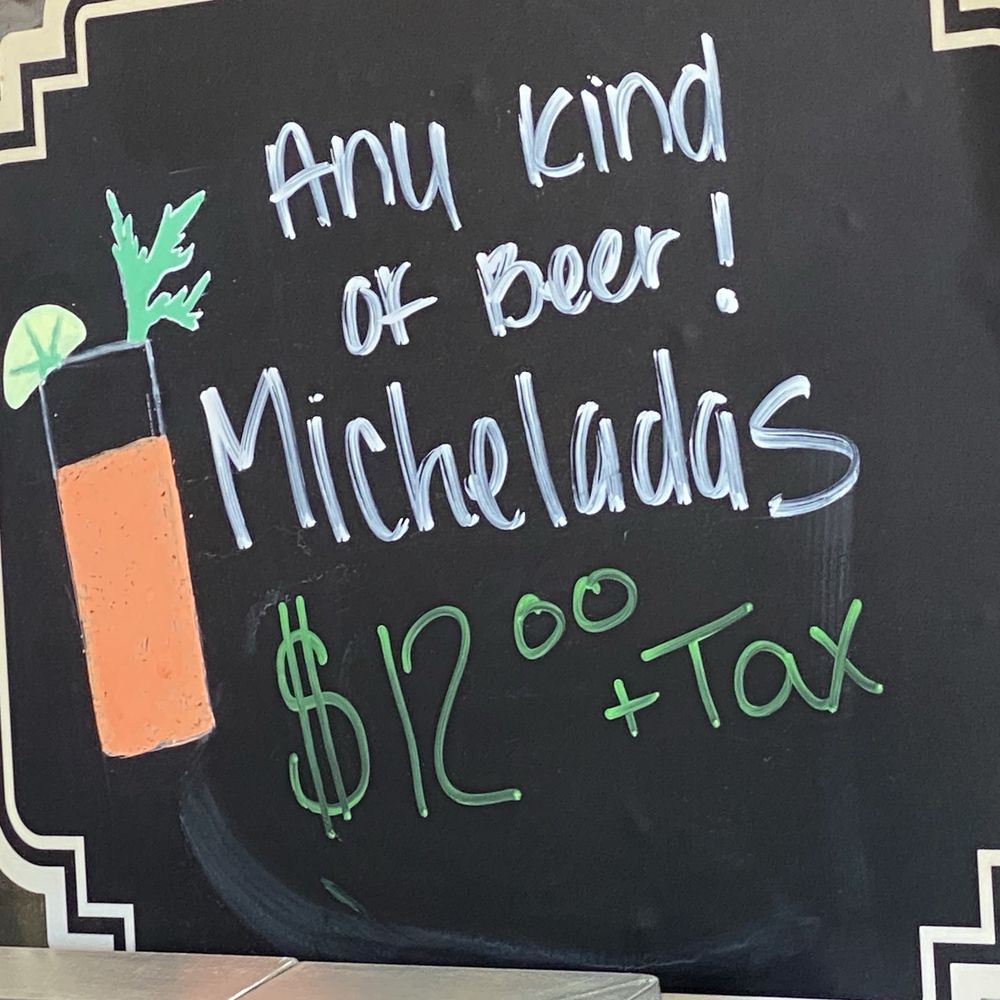 Any kind
of Beer!
Micheladas
$12.00
+Tax